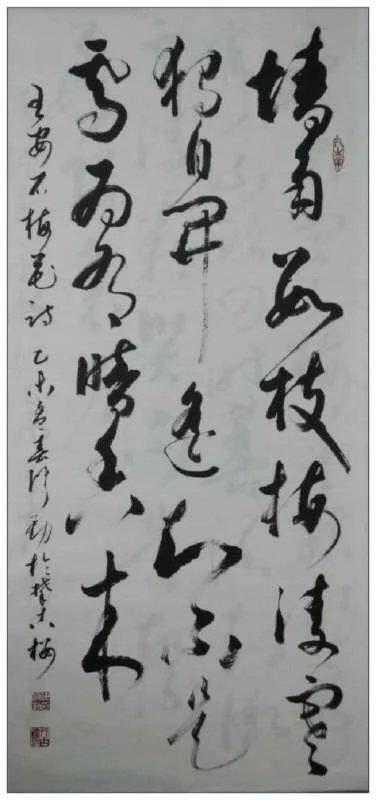 墙角数枝梅凌寒
独自开遥知不是
雪为有暗香来
王安石梅花诗 乙未